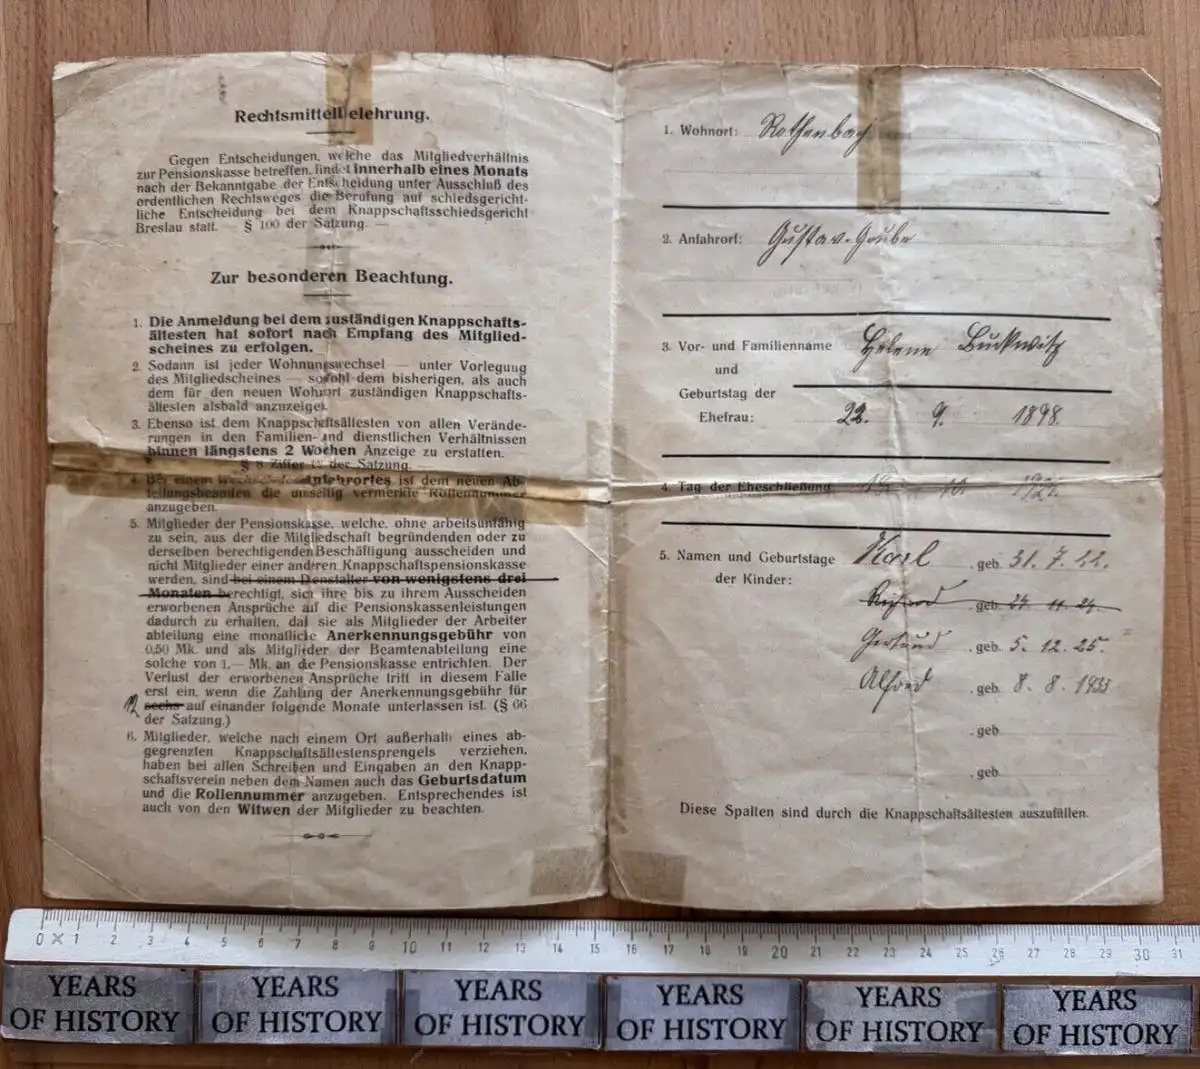 Rechtsmittelbelehrung.
Gegen Entscheidungen, welche das Mitgliedverhältnis
zur Pensionskasse betreffen, findet innerhalb eines Monats
nach der Bekanntgabe der Entscheidung unter Ausschluß des
ordentlichen Rechtsweges die Berufung auf schiedsgericht-
liche Entscheidung bei dem Knappschaftsschiedsgericht
Breslau statt. — § 100 der Satzung. —
Zur besonderen Beachtung.
1. Die Anmeldung bei dem zuständigen Knappschafts-
ältesten hat sofort nach Empfang des Mitglied-
scheines zu erfolgen.
2. Sodann ist jeder Wohnungswechsel — unter Vorlegung
des Mitgliedscheines — sowohl dem bisherigen, als auch
dem für den neuen Wohnort zuständigen Knappschafts-
ältesten alsbald anzuzeigen.
3. Ebenso ist dem Knappschaftsältesten von allen Verände-
rungen in den Familien- und dienstlichen Verhältnissen
binnen längstens 2 Wochen Anzeige zu erstatten.
§ 8 Ziffer der Satzung. —
4. Bei einem Wechsel des Anfahrortes ist dem neuen Ab-
teilungsbeamten die umseitig vermerkte Rollennummer
anzugeben.
5. Mitglieder der Pensionskasse, welche, ohne arbeitsunfähig
zu sein, aus der die Mitgliedschaft begründenden oder zu
derselben berechtigenden Beschäftigung ausscheiden und
nicht Mitglieder einer anderen Knappschaftspensionskasse
werden, sind bei einem Dienstalter von wenigstens drei
Monaten berechtigt, sich ihre bis zu ihrem Ausscheiden
erworbenen Ansprüche auf die Pensionskassenleistungen
dadurch zu erhalten, daß sie als Mitglieder der Arbeiter
abteilung eine monatliche Anerkennungsgebühr von
0,50 Mk. und als Mitglieder der Beamtenabteilung eine
solche von 1,— Mk. an die Pensionskasse entrichten. Der
Verlust der erworbenen Ansprüche tritt in diesem Falle
erst ein, wenn die Zahlung der Anerkennungsgebühr für
12 sechs auf einander folgende Monate unterlassen ist. (§ 66
der Satzung.)
6. Mitglieder, welche nach einem Ort außerhalb eines ab-
gegrenzten Knappschaftsältestensprengels verziehen,
haben bei allen Schreiben und Eingaben an den Knapp-
schaftsverein neben dem Namen auch das Geburtsdatum
und die Rollennummer anzugeben. Entsprechendes ist
auch von den Witwen der Mitglieder zu beachten.
1. Wohnort: Rothenbach
2. Anfahrort: Gustav-Grube
3. Vor- und Familienname Helene Buckwitz
und
Geburtstag der
Ehefrau: 22. 9. 1898.
4. Tag der Eheschließung 10. 1921.
5. Namen und Geburtstage Karl geb. 31. 7. 22.
der Kinder:
geb. 27. 11. 24.
Gertrud geb. 5. 12. 25.
Alfred geb. 8. 8. 1933
geb.
geb.
Diese Spalten sind durch die Knappschaftsältesten auszufüllen.
0 1 2 3 4 5 6 7 8 9 10 11 12 13 14 15 16 17 18 19 20 21 22 23 24 25 26 27 28 29 30 31
YEARS OF HISTORY YEARS OF HISTORY YEARS OF HISTORY YEARS OF HISTORY YEARS OF HISTORY YEARS OF HISTORY